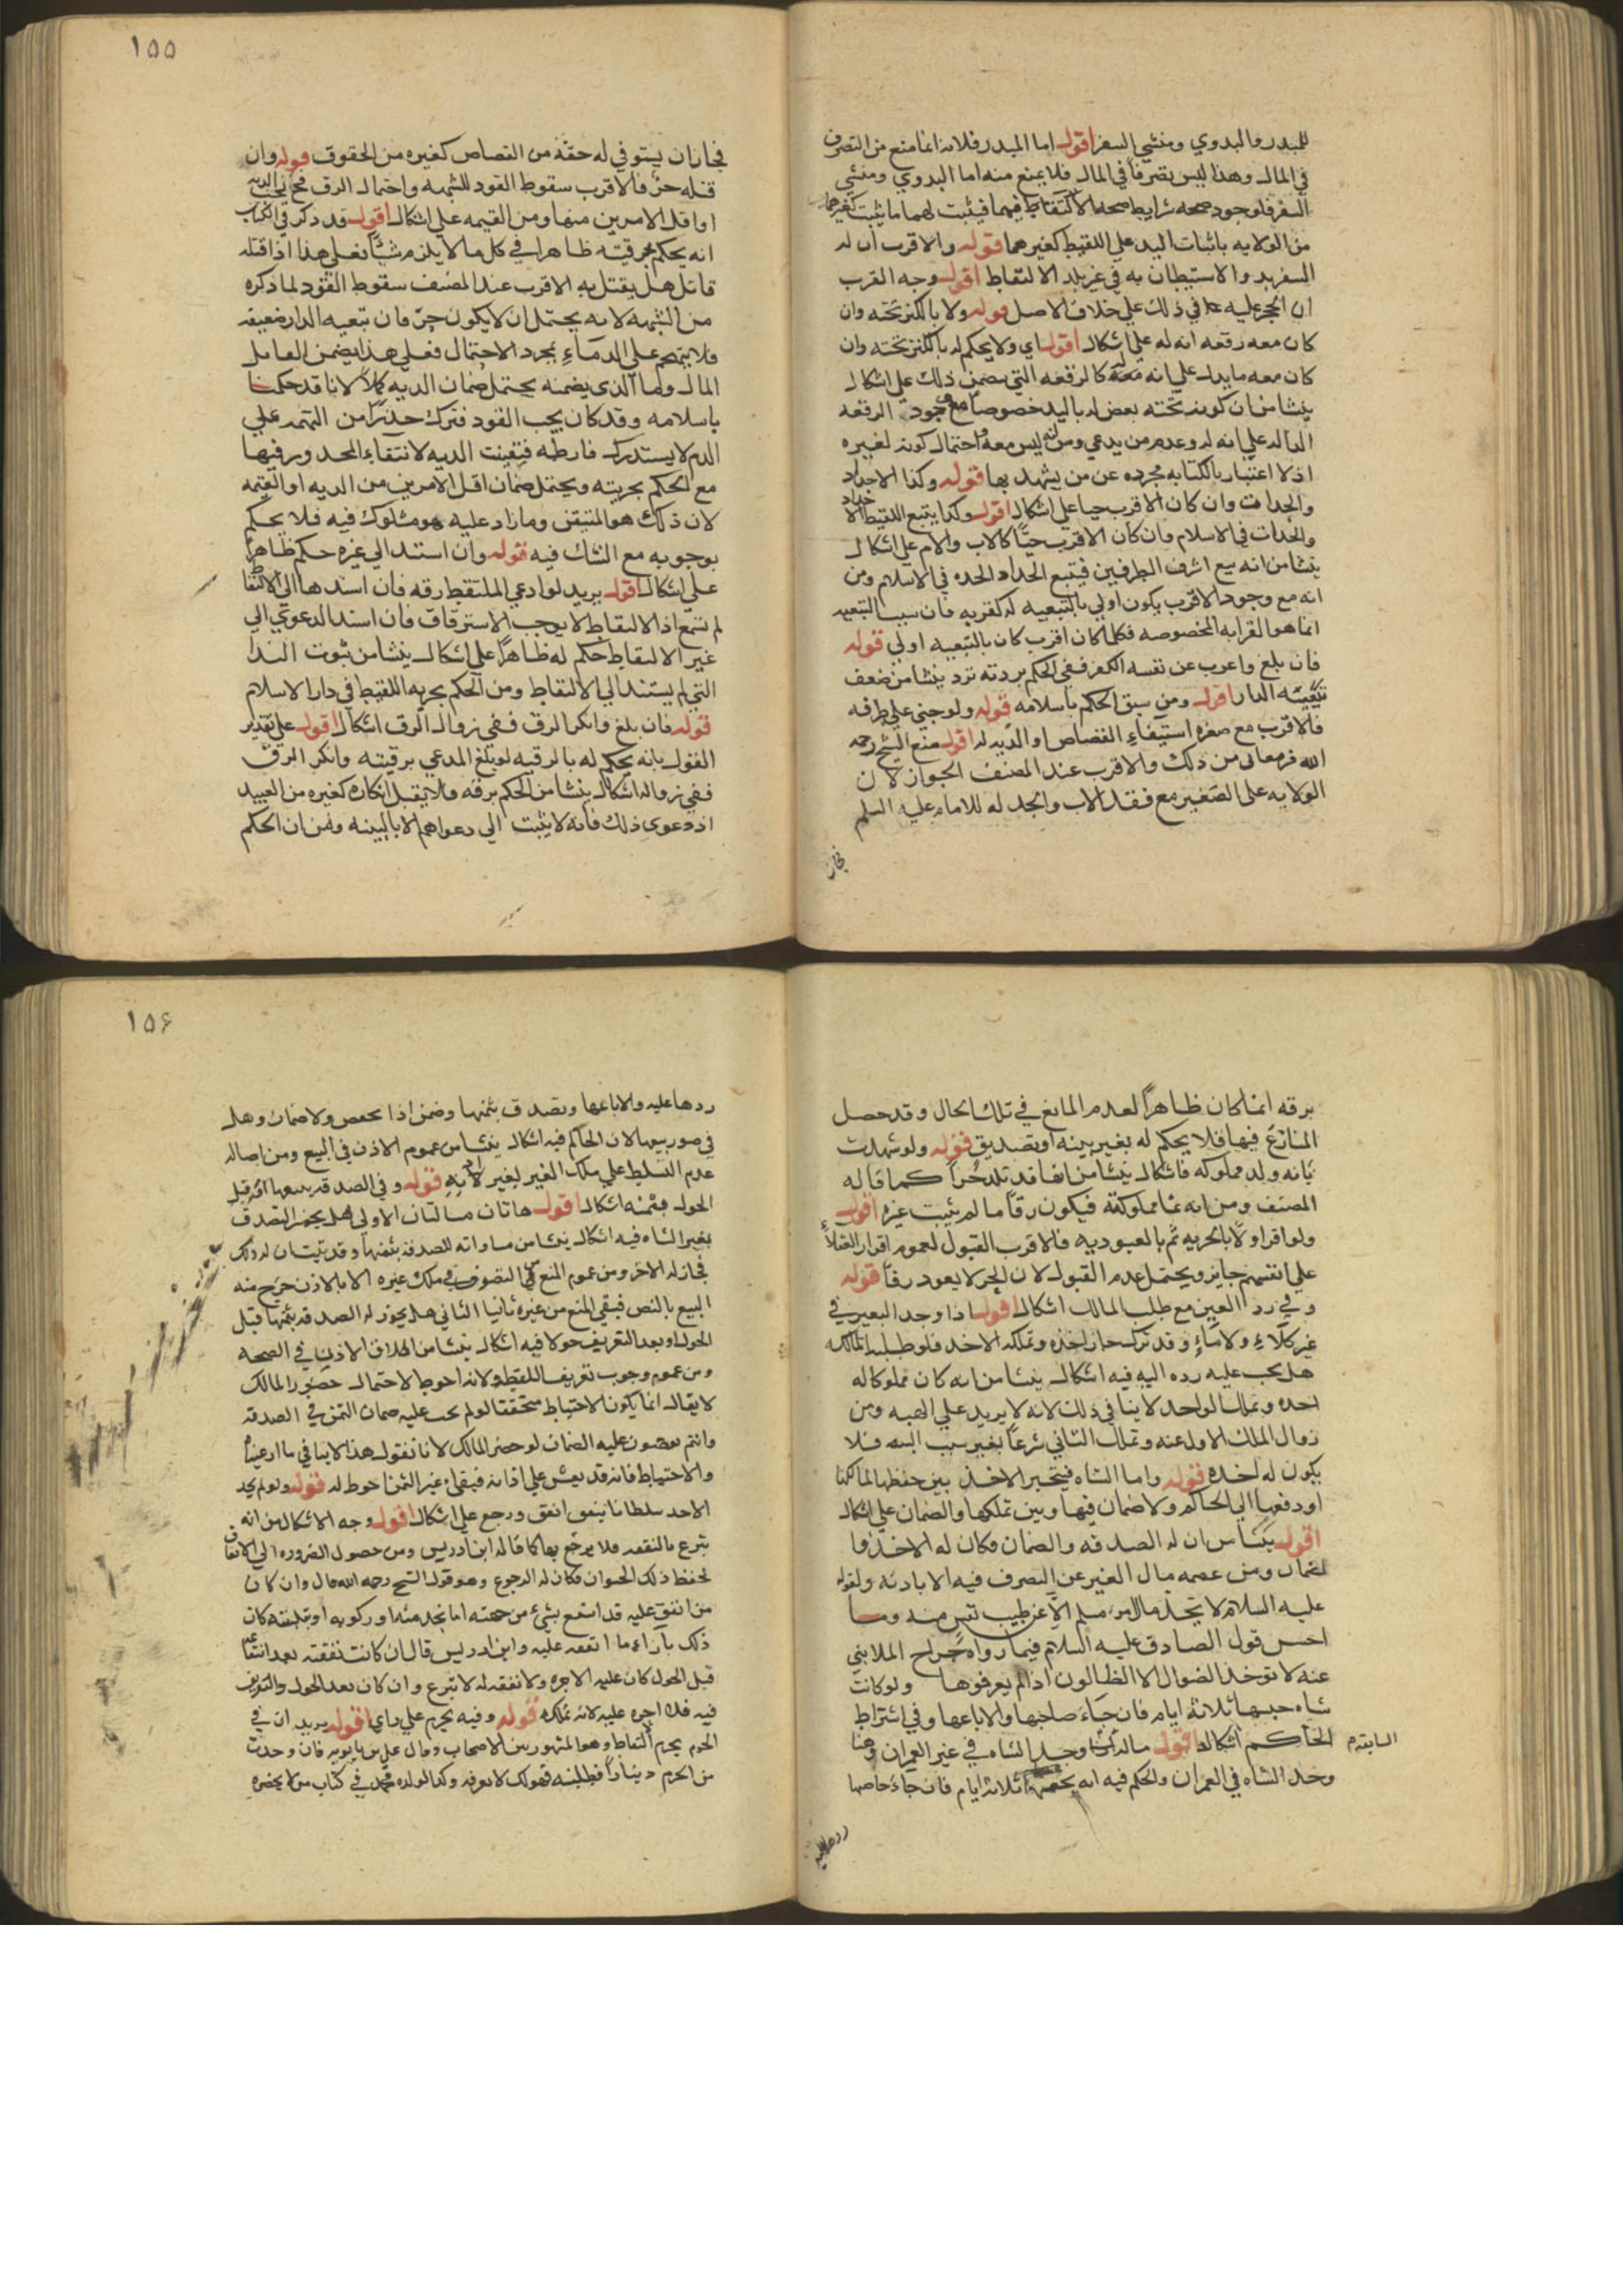 للمبدر والبدوي ومنشي السفر اقول اما المبدر فلانه انما منع من التصرف
في المال وهذا ليس تصرفا في المال فلا يمنع منه اما البدوي ومنشي
السفر فلوجود صحه شرايط صحه الالتقاط فيهما فيثبت لهما ما يثبت لغيرهما
من الولايه باثبات اليد على اللقيط كغيرهما قوله والاقرب ان له
السفر به والاستيطان به في غير بلد الالتقاط اقول وجه القرب
ان الحجر عليه في ذلك على خلاف الاصل قوله ولا بالكنز تحته وان
كان معه رقعه انه له على اشكال اقول اي ولا يحكم له بالكنز تحته وان
كان معه ما يدل على انه له كالرقعه التي تتضمن ذلك على اشكال
ينشا من ان كونه تحته بعض له باليد خصوصا مع وجود الرقعه
الداله على انه له وعدم من يدعي ومن انه ليس معه واحتمال كونه لغيره
اذ لا اعتبار بالكتابه مجرده عن من يشهد بها قوله وكذا الاجداد
والجدات وان كان الاقرب حيا على اشكال اقول وكذا يتبع اللقيط الاجداد
والجدات في الاسلام وان كان الاقرب حيا كالاب والام على اشكال
ينشا من انه يتبع اشرف الطرفين فيتبع الجد او الجده في الاسلام ومن
انه مع وجود الاقرب يكون اولى بالتبعيه له لقربه فان سبب التبعيه
انما هو القرابه المخصوصه فكلما كان اقرب كان بالتبعيه اولى قوله
فان بلغ واعرب عن نفسه الكفر ففي الحكم بردته تردد ينشا من ضعف
تبعيته الدار اقول ومن سبق الحكم باسلامه قوله ولو جني على طرفه
فالاقرب مع صغره استيفاء القصاص او الديه له اقول منع الشيخ رحمه
الله من ذلك والاقرب عند المصنف الجواز لان
الولايه على الصغير مع فقد الاب والجد له للامام عليه السلم
فجاز
١٥٥
فجاز ان يستوفي له حقه من القصاص كغيره من الحقوق قوله وان
قتله حر فالاقرب سقوط القود للشبهه واحتمال الرق فحينئذ تجب الديه
او اقل الامرين منها ومن القيمه على اشكال اقول قد ذكر في الكتاب
انه يحكم بحريته ظاهرا في كل ما لا يلزم شيئا فعلى هذا اذا قتله
قاتل هل يقتل به الاقرب عند المصنف سقوط القود لما ذكره
من الشبهه لانه يحتمل ان لا يكون حر فان تبعيه الدار ضعيفه
فلا يتهجم على الدماء بمجرد الاحتمال فعلى هذا يضمن القاتل
المال وما الذي يضمنه يحتمل ضمان الديه كملا لانا قد حكمنا
باسلامه وقد كان يجب القود فترك حذرا من التهجم على
الدم لا يستدرك فارطه فتعينت الديه لانتفاء المحذور فيها
مع الحكم بحريته ويحتمل ضمان اقل الامرين من الديه او القيمه
لان ذلك هو المتيقن وما زاد عليه هو مشكوك فيه فلا يحكم
بوجوبه مع الشك فيه قوله وان استند الى غيره حكم ظاهرا
على اشكال اقول يريد لو ادعي الملتقط رقه فان اسندها الى الالتقا
لم تسمع اذ الالتقاط لا يوجب الاسترقاق فان اسند الدعوى الى
غير الالتقاط حكم له ظاهرا على اشكال ينشا من ثبوت اليد
التي لم يستند الى الالتقاط ومن الحكم بحريه اللقيط في دار الاسلام
قوله فان بلغ وانكر الرق ففي زوال الرق اشكال اقول على تقدير
القول بانه يحكم له بالرقيه لو بلغ المدعي برقيته وانكر الرق
ففي زواله اشكال ينشا من الحكم برقه فلا يقبل انكاره كغيره من العبيد
اذ دعوى ذلك فانه لا يلتفت الى دعواهم الا بالبينه ومن ان الحكم
برقه انما كان ظاهرا لعدم المانع في تلك الحال وقد حصل
المنازع فيها فلا يحكم له بغير بينه او تصديق قوله ولو شهدت
بانه ولد مملوكه فاشكال ينشا من انها قد تلد حرا كما قاله
المصنف ومن انه نما مملوكته فيكون رقا ما لم يثبت غيره اقول
ولو اقر اولا بالحريه ثم بالعبوديه فالاقرب القبول لعموم اقرار العقلاء
على انفسهم جايز ويحتمل عدم القبول لان الحر لا يعود رقا قوله
وفي رد العين مع طلب المالك اشكال اقول اذا وجد البعير في
غير كلاء ولا ماء وقد ترك جاز اخذه وتملكه الاخذ فلو طلبه المالك
هل يجب عليه رده اليه فيه اشكال ينشا من انه كان مملوكا له
اخذه وتملك الواحد لا ينافي ذلك لانه لا يزيد على الهبه ومن
زوال الملك الاول عنه وتملك الثاني شرعا بغير سبب الهبه فلا
يكون له اخذه قوله واما الشاه فيتخير الاخذ بين حفظها لمالكها
او دفعها الى الحاكم ولا ضمان فيها وبين تملكها والضمان على اشكال
اقول ينشا من ان له الصدقه والضمان فكان له الاخذ
لضمان ومن عصمه مال الغير عن التصرف فيه الا باذنه ولقوله
عليه السلام لا يحل مال امرء مسلم الا عن طيب نفس منه وما
احسن قول الصادق عليه السلام فيما رواه جراح المدايني
عنه لا توخذ الضوال الا الظالون اذا لم يعرفوها ولو كانت
شاه حبسها ثلاثه ايام فان جاء صاحبها والا باعها وفي اشتراط
الحاكم اشكال اقول وجد الشاه في غير العمران وهنا
السابقه م
وجد الشاه في العمران والحكم فيه انه يحبسها ثلاثه ايام فان جاء صاحبها
ردها عليه
١٥۶
ردها عليه والا باعها وتصدق بثمنها وضمن اذا ولا ضمان وهل
في صور بيعها لاذن الحاكم فيه اشكال ينشا من عموم الاذن في البيع ومن اصاله
عدم التسلط على ملك الغير لغير قوله وفي الصدقه قبل
الحول بثمنه اشكال اقول هاتان مسالتان الاولى هل يجوز التصدق
بغير الشاه فيه اشكال ينشا من مساواته للصدقه بثمنها وقد ثبت ان له ذلك
فجاز له الاخر ومن عموم المنع من التصرف في ملك غيره الا بالاذن خرج منه
البيع بالنص فبقي المنع من غيره ثابتا الثاني هل يجوز له الصدقه بثمنها قبل
الحول او بعد التعريف حولا فيه اشكال ينشا من اطلاق الاذن في الصحه
ومن عموم وجوب تعريف اللقطه ولانه احوط لاحتمال حضور المالك
لا يقال انما يكون الاحتياط متحققا لو لم يجب عليه ضمان الثمن في الصدقه
وانتم توجبون عليه الضمان لو حضر المالك لانا نقول هذا لا ينافي ما ادعيناه
والاحتياط فانه قد يعسر على اذانه فبقاء عين الثمن احوط له قوله ولو لم يجد
الاخذ سلطانا ينفق انفق ورجع على اشكال اقول وجه الاشكال من انه
تبرع بالنفقه فلا يرجع بها كما قاله ابن ادريس ومن حصول الضروره الى الانفاق
لحفظ ذلك الحيوان فكان له الرجوع وهو قول الشيخ رحمه الله قال وان كان
من انفق عليه قد انتفع بشيء من جهته اما بخدمته او ركوبه او كان
ذلك بازاء ما انفقه عليه وابن ادريس قال ان كانت نفقته بعد انتفاعه
قبل الحول كان عليه الاجره ولا نفقه له لانه تبرع وان كان بعد الحول والتعريف
فيه فلا اجره عليه لانه تملكه قوله وفيه يحرم على راي اقول يريد ان في
الحرم يحرم التقاط وهو المشهور بين الاصحاب وقال علي بن بابويه فان وجدت
من الحرم دينارا مطلسا فهو لك لا تعرفه وكذا لولده محمد في كتاب من لا يحضره